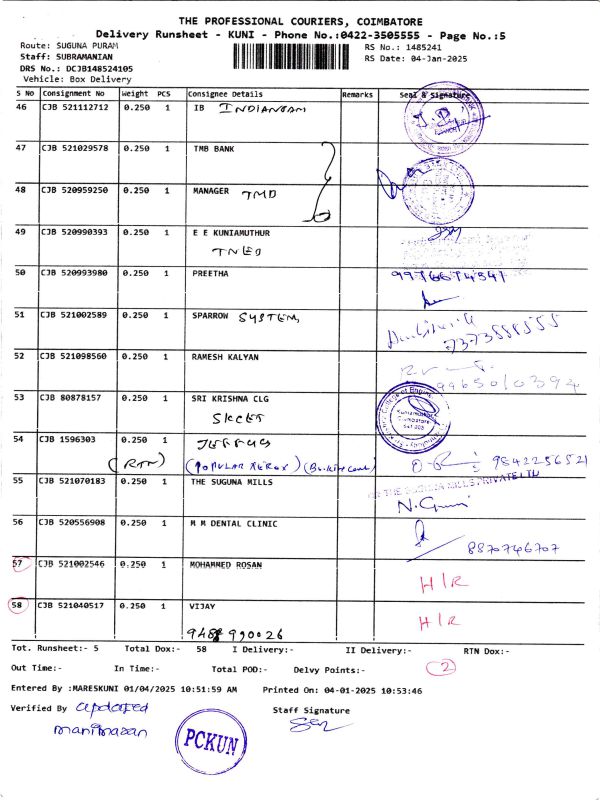 THE PROFESSIONAL COURIERS, COIMBATORE
Delivery Runsheet - KUNI - Phone No.:0422-3505555 - Page No.:5
Route: SUGUNA PURAM
RS No.: 1485241
Staff: SUBRAMANIAN
RS Date: 04-Jan-2025
DRS No.: DCJB148524105
Vehicle: Box Delivery
S NO Consignment No Weight PCS Consignee Details Remarks Seal & Signature
46 CJB 521112712 0.250 1 IB
47 CJB 521029578 0.250 1 TMB BANK
48 CJB 520959250 0.250 1 MANAGER TMD
49 CJB 520990393 0.250 1 E E KUNIAMUTHUR
TNEB
50 CJB 520993980 0.250 1 PREETHA
51 CJB 521002589 0.250 1 SPARROW SYSTEM,
7373588555
52 CJB 521098560 0.250 1 RAMESH KALYAN
9965010394
53 CJB 80878157 0.250 1 SRI KRISHNA CLG
SKCET
Kuniamuthur
Coimbatore
54 CJB 1596303 0.250 1
(RTN) (POPULAR XEROX) 9842256521
55 CJB 521070183 0.250 1 THE SUGUNA MILLS
THE SUGUNA MILLS PRIVATE LTD
56 CJB 520556908 0.250 1 M M DENTAL CLINIC
8870746707
57 CJB 521002546 0.250 1 MOHAMMED ROSAN H/R
58 CJB 521040517 0.250 1 VIJAY H/R
Tot. Runsheet:- 5 Total Dox:- 58 I Delivery:- II Delivery:- RTN Dox:-
2
Out Time:- In Time:- Total POD:- Delvy Points:-
Entered By :MARESKUNI 01/04/2025 10:51:59 AM Printed On: 04-01-2025 10:53:46
Verified By updated Staff Signature
manimaran
PCKUN